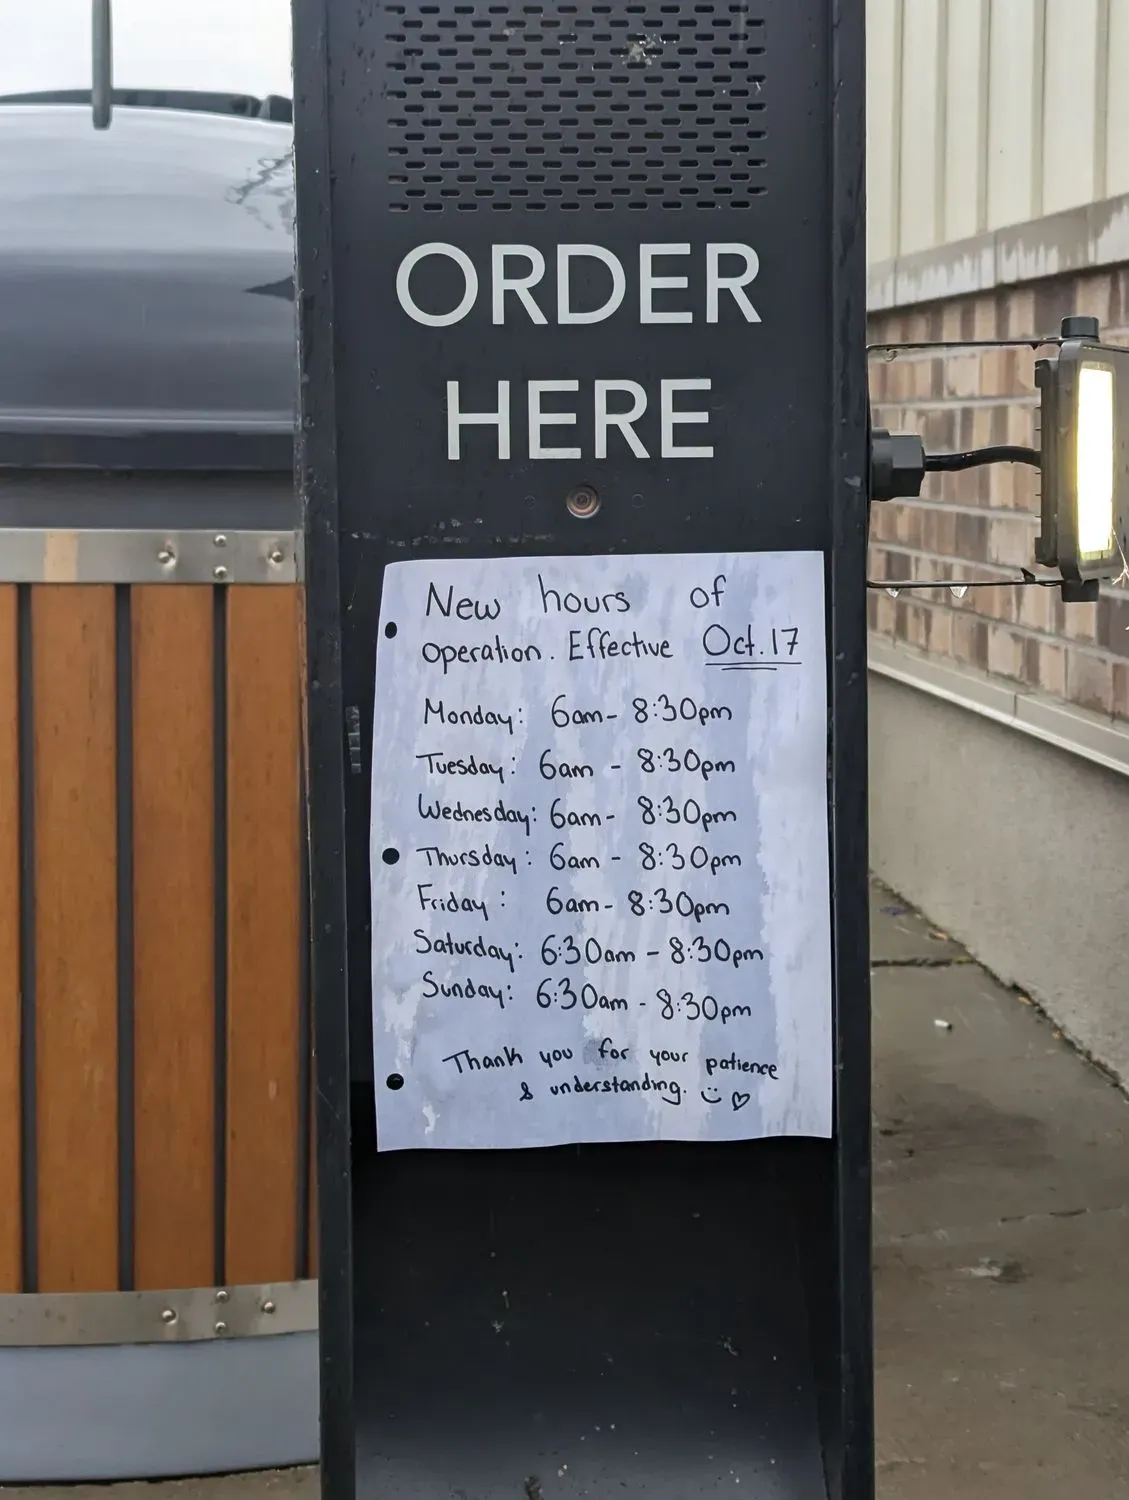 ORDER
HERE
New hours of
operation. Effective Oct. 17
Monday: 6am - 8:30pm
Tuesday: 6am - 8:30pm
Wednesday: 6am - 8:30pm
Thursday: 6am - 8:30pm
Friday: 6am - 8:30pm
Saturday: 6:30am - 8:30pm
Sunday: 6:30am - 8:30pm
Thank you for your patience
& understanding. ☺ ♡